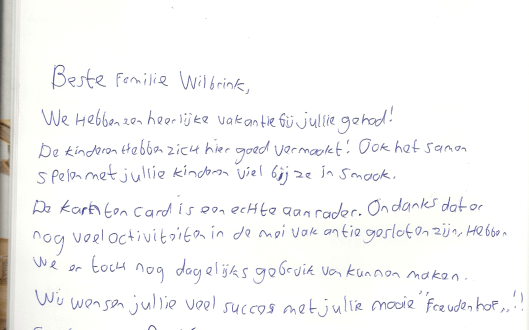 Beste Familie Wilbrink,
We Hebben een heerlijke vakantie bij jullie gehad!
De kinderen Hebben zich hier goed vermaakt! Ook het samen
spelen met jullie kinderen viel bij ze in smaak.
De Kärnten card is een echte aanrader. Ondanks dat er
nog veel activiteiten in de mei vakantie gesloten zijn, Hebben
We er toch nog dagelijks gebruik van kunnen maken.
Wij wensen jullie veel succes met jullie mooie "Freudenhof,,!!